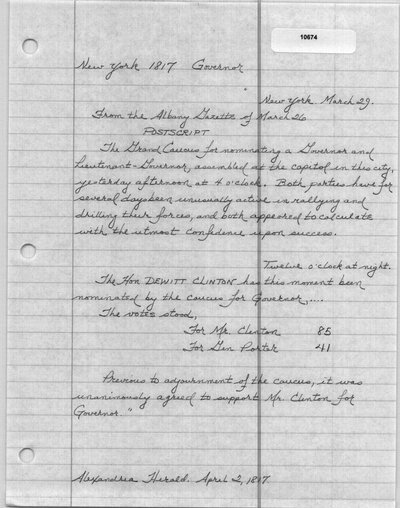 10674
New York 1817 Governor
New York. March 29.
From the Albany Gazette of March 26
POSTSCRIPT
The Grand Caucus for nominating a Governor and
Lieutenant-Governor, assembled at the capitol in this city,
yesterday afternoon at 4 o'clock. Both parties have for
several days been unusually active in rallying and
drilling their forces, and both appeared to calculate
with the utmost confidence upon success.
Twelve o'clock at night.
The Hon DEWITT CLINTON has this moment been
nominated by the caucus for Governor,....
The votes stood,
For Mr. Clinton 85
For Gen Porter 41
Previous to adjournment of the caucus, it was
unanimously agreed to support Mr. Clinton for
Governor."
Alexandria Herald. April 2, 1817.